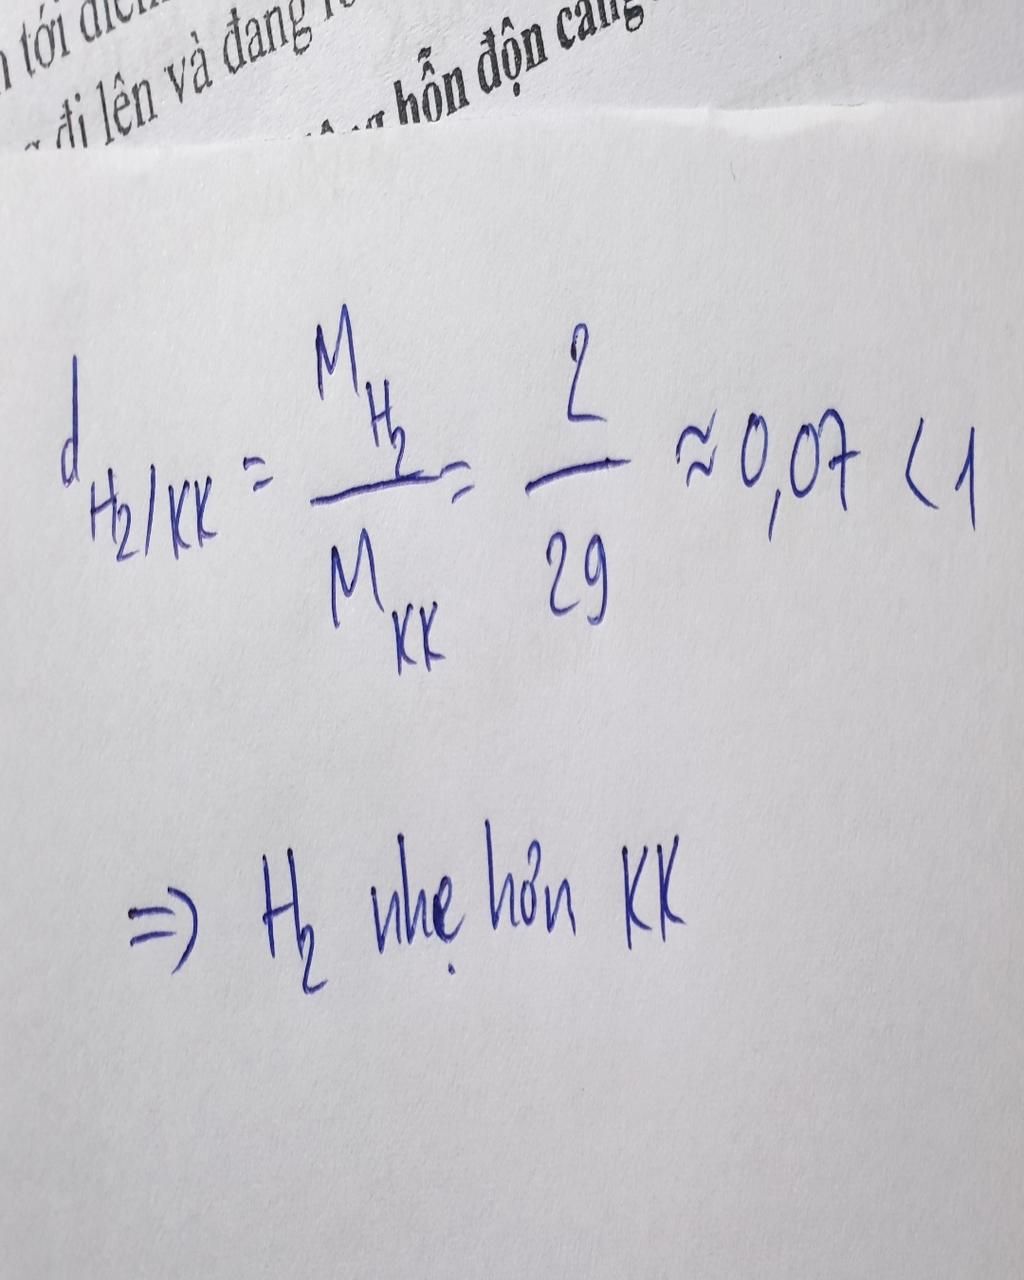 tới
đi lên và đang
hỗn độn càng
d H₂/KK = M H₂ / M KK = 2 / 29 ≈ 0,07 < 1
=> H₂ nhẹ hơn KK